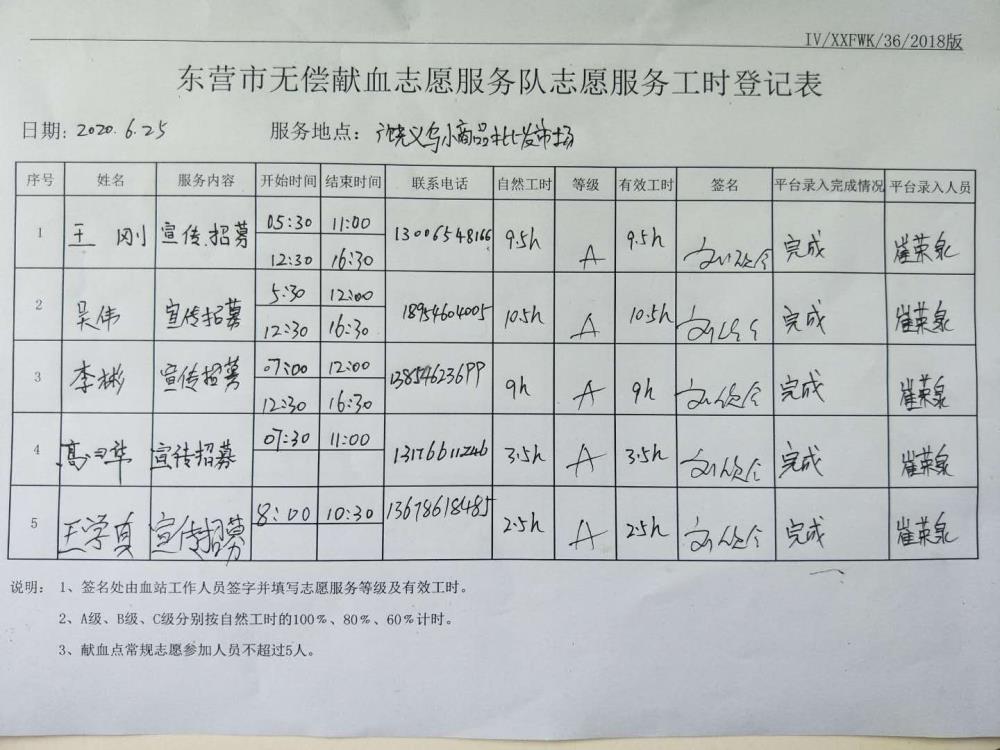 IV/XXFWK/36/2018版
东营市无偿献血志愿服务队志愿服务工时登记表
日期: 2020.6.25 服务地点: 广饶义乌小商品批发市场
序号 姓名 服务内容 开始时间 结束时间 联系电话 自然工时 等级 有效工时 签名 平台录入完成情况 平台录入人员
1 王刚 宣传.招募 05:30 11:00 13006548166 9.5h A 9.5h 完成 崔荣泉
12:30 16:30
2 吴伟 宣传招募 5:30 12:00 18954604005 10.5h A 10.5h 完成 崔荣泉
12:30 16:30
3 李彬 宣传招募 07:00 12:00 13854623699 9h A 9h 完成 崔荣泉
12:30 16:30
4 宣传招募 07:30 11:00 13176611246 3.5h A 3.5h 完成 崔荣泉
5 王学真 宣传招募 8:00 10:30 13678618485 2.5h A 2.5h 完成 崔荣泉
说明: 1、签名处由血站工作人员签字并填写志愿服务等级及有效工时。
2、A级、B级、C级分别按自然工时的100%、80%、60%计时。
3、献血点常规志愿参加人员不超过5人。